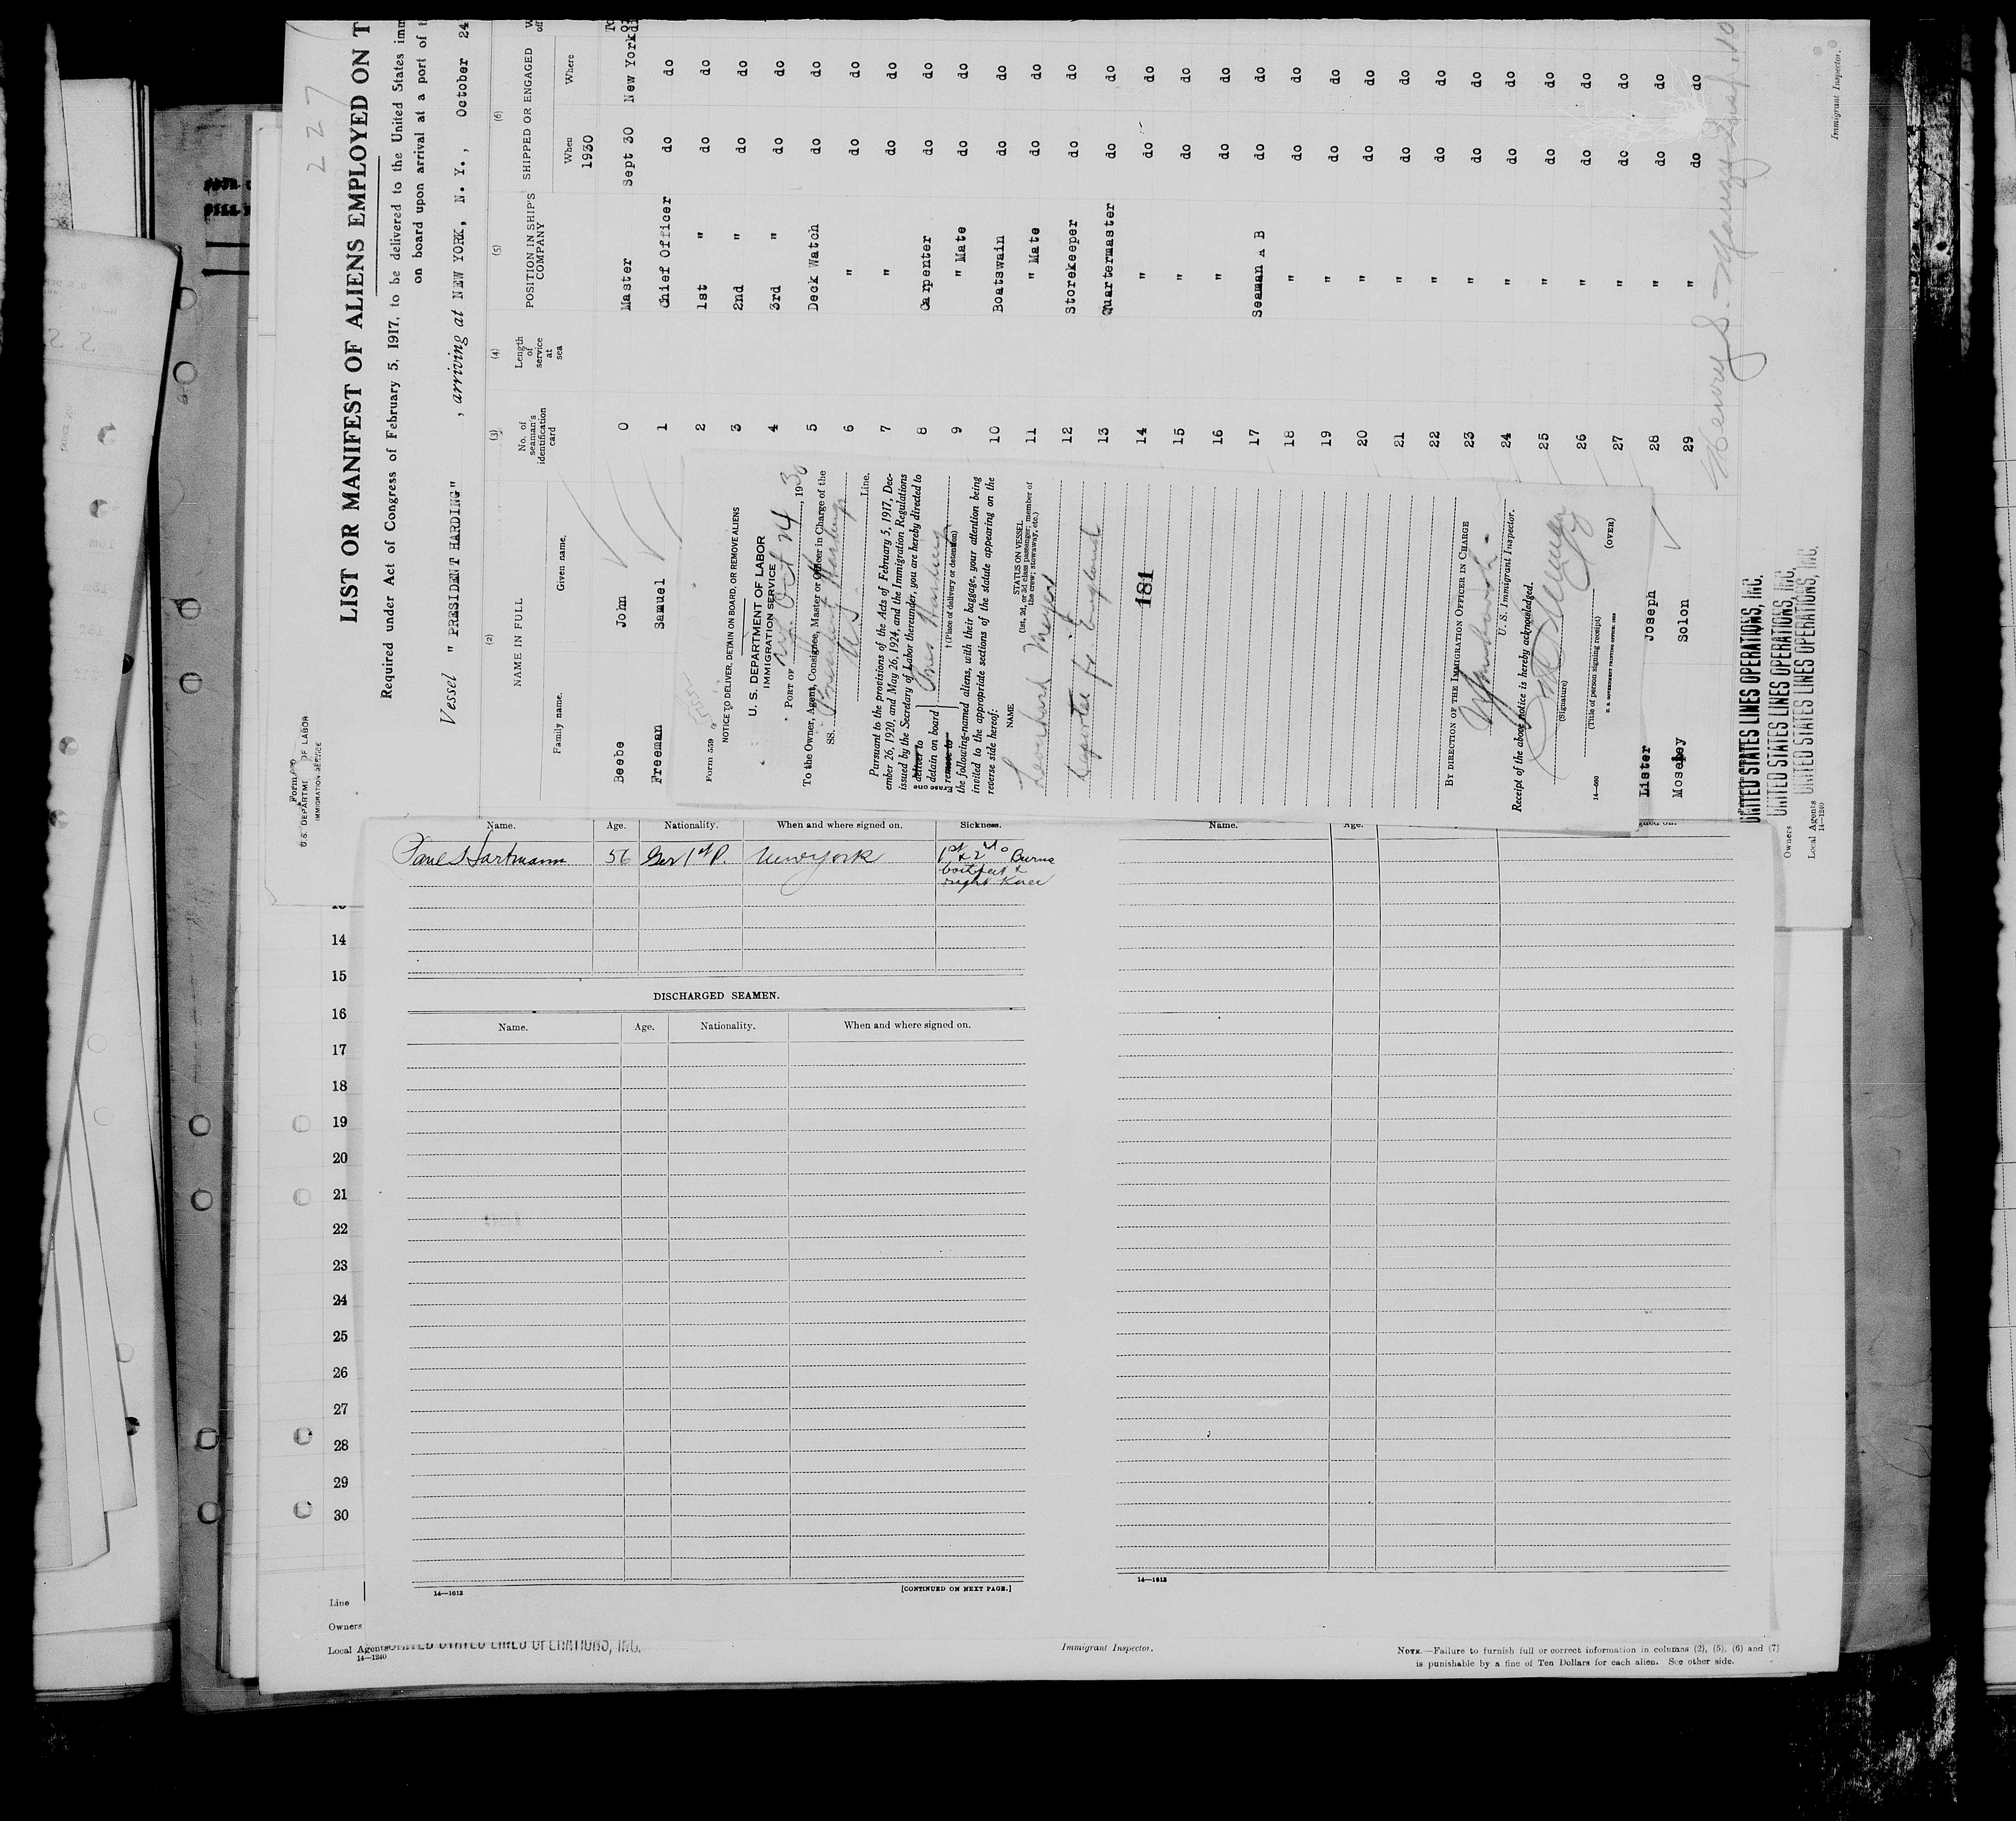 227
LIST OR MANIFEST OF ALIENS EMPLOYED ON T
Required under Act of Congress of February 5, 1917, to be delivered to the United States imm
on board upon arrival at a port of t
Vessel " PRESIDENT HARDING" , arriving at NEW YORK, N. Y., October 24
Form 680
U.S. DEPARTMENT OF LABOR
IMMIGRATION SERVICE
(2) (3) (4) (5) (6)
NAME IN FULL
Family name. Given name.
No. of seaman's identification card
Length of service at sea
POSITION IN SHIP'S COMPANY
SHIPPED OR ENGAGED
When Where
1930
Beebe John 0 Master Sept 30 New York
Freeman Samuel 1 Chief Officer do do
2 1st " do do
3 2nd " do do
4 3rd " do do
5 Deck Watch do do
6 " do do
7 " do do
8 Carpenter do do
9 " Mate do do
10 Boatswain do do
11 " Mate do do
12 Storekeeper do do
13 Quartermaster do do
14 " do do
15 " do do
16 " do do
17 Seaman A B do do
18 " do do
19 " do do
20 " do do
21 " do do
22 " do do
23 " do do
24 " do do
25 " do do
26 " do do
27 " do do
Lister Joseph 28 " do do
Mosepey Solon 29 " do do
Immigrant Inspector.
UNITED STATES LINES OPERATIONS, INC.
Owners UNITED STATES LINES OPERATIONS, INC.
Local Agents UNITED STATES LINES OPERATIONS, INC.
14—1240
Form 559
NOTICE TO DELIVER, DETAIN ON BOARD, OR REMOVE ALIENS
U. S. DEPARTMENT OF LABOR
IMMIGRATION SERVICE
PORT OF N.Y. Oct 24, 1930
To the Owner, Agent, Consignee, Master or Officer in Charge of the
SS. President Harding
U.S. Line.
Pursuant to the provisions of the Acts of February 5, 1917, Dec-
ember 26, 1920, and May 26, 1924, and the Immigration Regulations
issued by the Secretary of Labor thereunder, you are hereby directed to
deliver to
detain on board Pres Harding
remove to (Place of delivery or detention)
Erase one
the following-named aliens, with their baggage, your attention being
invited to the appropriate sections of the statute appearing on the
reverse side hereof:
NAME STATUS ON VESSEL
(1st, 2d, or 3d class passenger; member of
the crew; stowaway, etc.)
Leonhard Meyer
Deportee fr England
181
BY DIRECTION OF THE IMMIGRATION OFFICER IN CHARGE
U. S. Immigrant Inspector.
Receipt of the above notice is hereby acknowledged.
(Signature)
(Title of person signing receipt)
14—660 U. S. GOVERNMENT PRINTING OFFICE (OVER)
Name. Age. Nationality. When and where signed on. Sickness.
Paul Hartmann 56 Ger 1st P. New York 1st & 2nd Burns
both feet &
right Knee
Name. Age.
DISCHARGED SEAMEN.
Name. Age. Nationality. When and where signed on.
14—1613 [CONTINUED ON NEXT PAGE.]
14—1613
14
15
16
17
18
19
20
21
22
23
24
25
26
27
28
29
30
Line
Owners
Local Agents UNITED STATES LINES OPERATIONS, INC.
14—1240
Immigrant Inspector.
NOTE.—Failure to furnish full or correct information in columns (2), (5), (6) and (7)
is punishable by a fine of Ten Dollars for each alien. See other side.